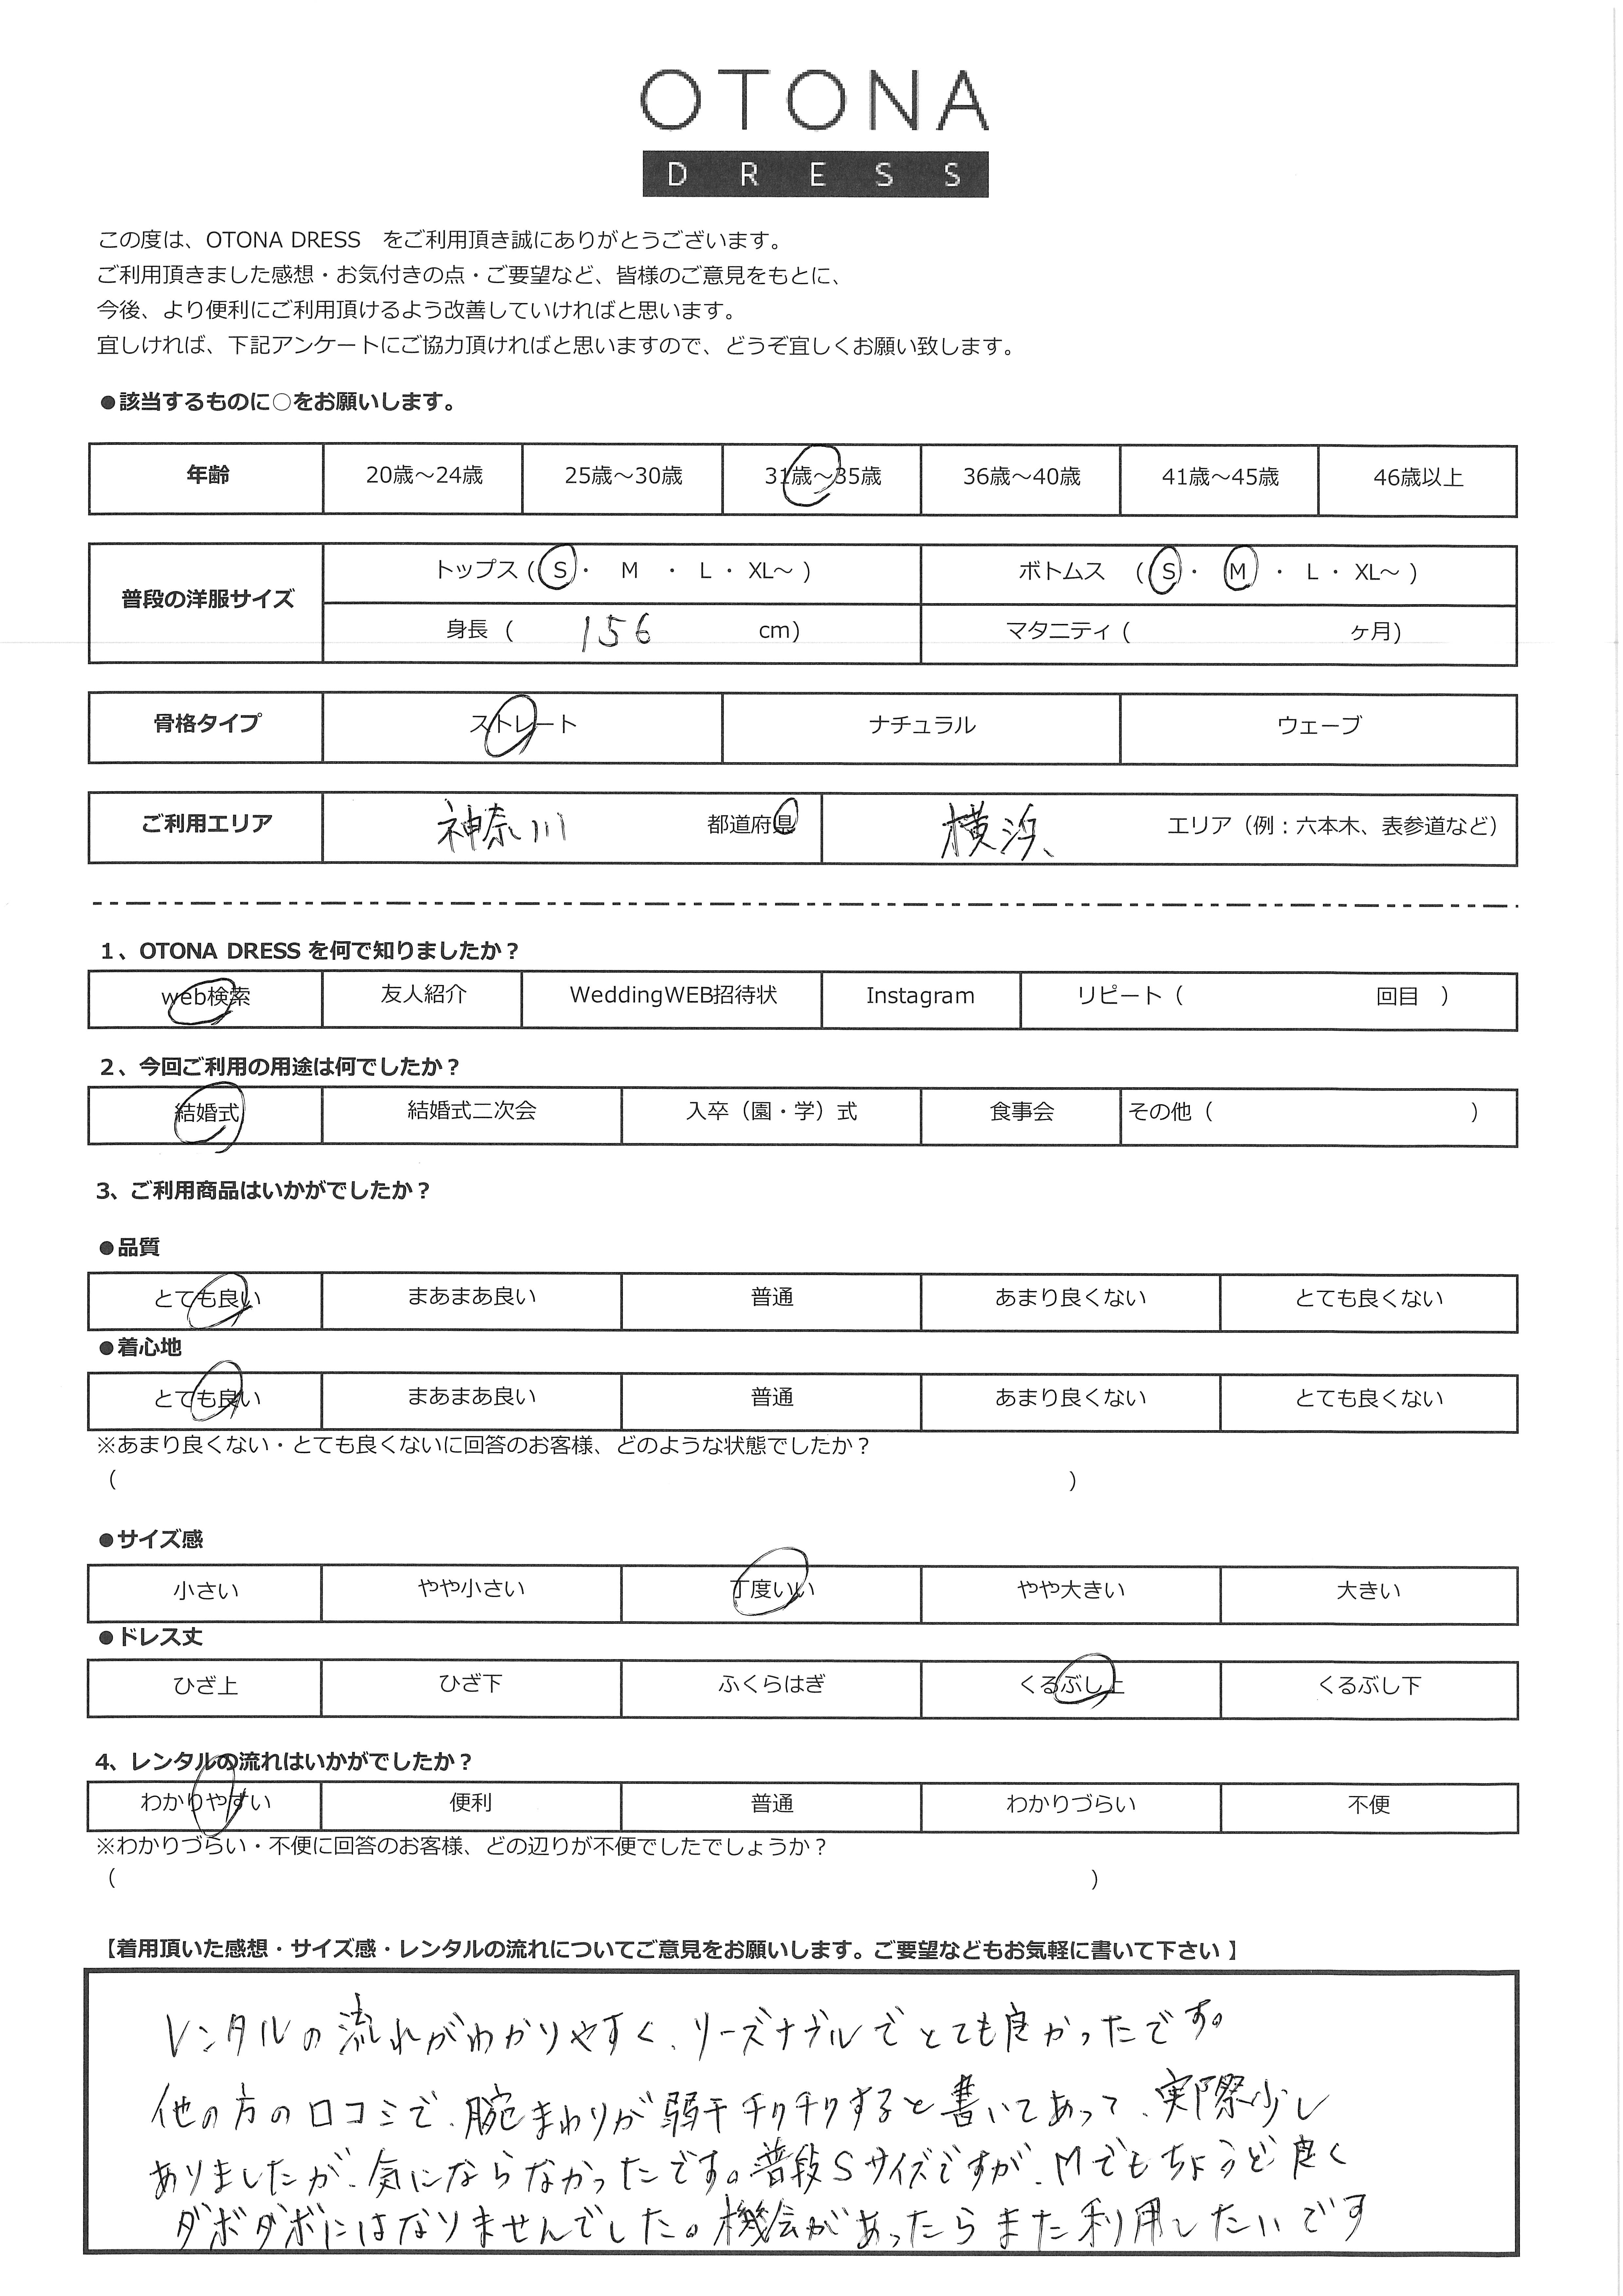 OTONA
DRESS
この度は、OTONA DRESS　をご利用頂き誠にありがとうございます。
ご利用頂きました感想・お気付きの点・ご要望など、皆様のご意見をもとに、
今後、より便利にご利用頂けるよう改善していければと思います。
宜しければ、下記アンケートにご協力頂ければと思いますので、どうぞ宜しくお願い致します。
●該当するものに○をお願いします。
年齢 20歳～24歳 25歳～30歳 31歳～35歳 36歳～40歳 41歳～45歳 46歳以上
普段の洋服サイズ
トップス ( S ・ M ・ L ・ XL～ ) ボトムス ( S ・ M ・ L ・ XL～ )
身長 ( 156 cm) マタニティ ( ヶ月)
骨格タイプ ストレート ナチュラル ウェーブ
ご利用エリア 神奈川 都道府県 横浜、 エリア（例：六本木、表参道など）
1、OTONA DRESS を何で知りましたか？
web検索 友人紹介 WeddingWEB招待状 Instagram リピート（ 回目 ）
2、今回ご利用の用途は何でしたか？
結婚式 結婚式二次会 入卒（園・学）式 食事会 その他（ ）
3、ご利用商品はいかがでしたか？
●品質
とても良い まあまあ良い 普通 あまり良くない とても良くない
●着心地
とても良い まあまあ良い 普通 あまり良くない とても良くない
※あまり良くない・とても良くないに回答のお客様、どのような状態でしたか？
（ ）
●サイズ感
小さい やや小さい 丁度いい やや大きい 大きい
●ドレス丈
ひざ上 ひざ下 ふくらはぎ くるぶし上 くるぶし下
4、レンタルの流れはいかがでしたか？
わかりやすい 便利 普通 わかりづらい 不便
※わかりづらい・不便に回答のお客様、どの辺りが不便でしたでしょうか？
（ ）
【着用頂いた感想・サイズ感・レンタルの流れについてご意見をお願いします。ご要望などもお気軽に書いて下さい 】
レンタルの流れがわかりやすく、リーズナブルでとても良かったです。
他の方の口コミで、腕まわりが弱干チクチクすると書いてあって、実際少し
ありましたが、気にならなかったです。普段Sサイズですが、Mでもちょうど良く
ダボダボにはなりませんでした。機会があったらまた利用したいです